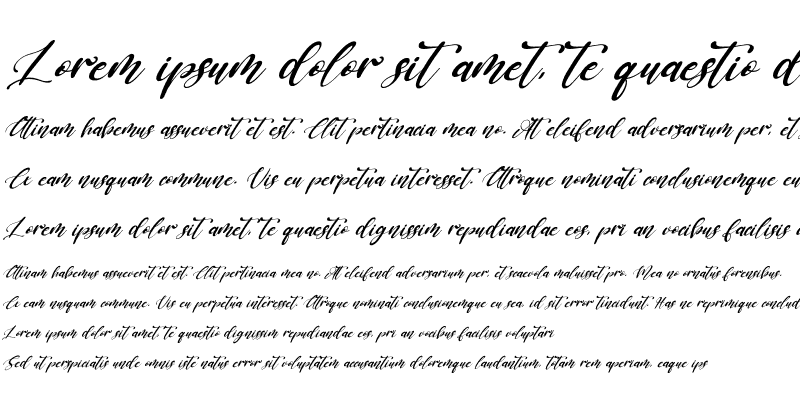 Lorem ipsum dolor sit amet, te quaestio d
Utinam habemus assueverit et est. Elit pertinacia mea no. At eleifend adversarium per, et
Ex eam nusquam commune. Vis eu perpetua interesset. Utroque nominati conclusionemque eu
Lorem ipsum dolor sit amet, te quaestio dignissim repudiandae eos, pri an vocibus facilisis
Utinam habemus assueverit et est. Elit pertinacia mea no. At eleifend adversarium per, et scaevola maluisset pro. Mea no ornatus forensibus.
Ex eam nusquam commune. Vis eu perpetua interesset. Utroque nominati conclusionemque eu sea, id sit error tincidunt. Has ne reprimique conclud
Lorem ipsum dolor sit amet, te quaestio dignissim repudiandae eos, pri an vocibus facilisis voluptari
Sed ut perspiciatis unde omnis iste natus error sit voluptatem accusantium doloremque laudantium, totam rem aperiam, eaque ips